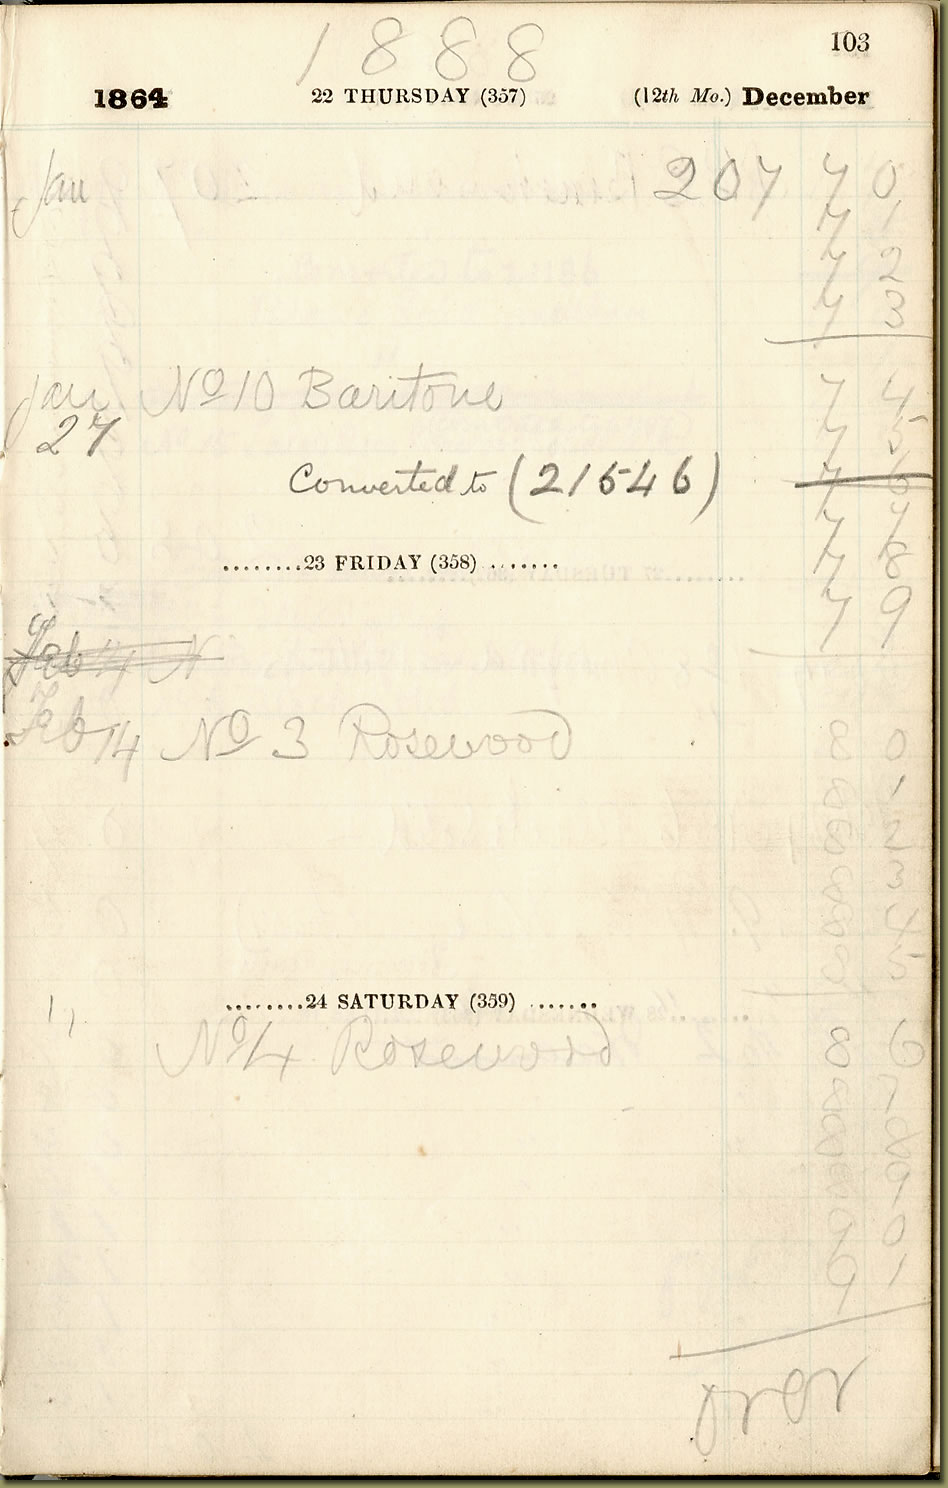 1888
103
1864 22 THURSDAY (357) (12th Mo.) December
Jan 207 7 0
7 1
7 2
7 3
Jan No 10 Baritone 7 4
27 7 5
Converted to (21546) 7 6
7 7
........23 FRIDAY (358) ....... 7 8
7 9
Feb 14 N
Feb 14 No 3 Rosewood 8 0
8 1
8 2
8 3
8 4
8 5
........24 SATURDAY (359) .......
" No 4 Rosewood 8 6
8 7
8 8
8 9
9 0
9 1
over